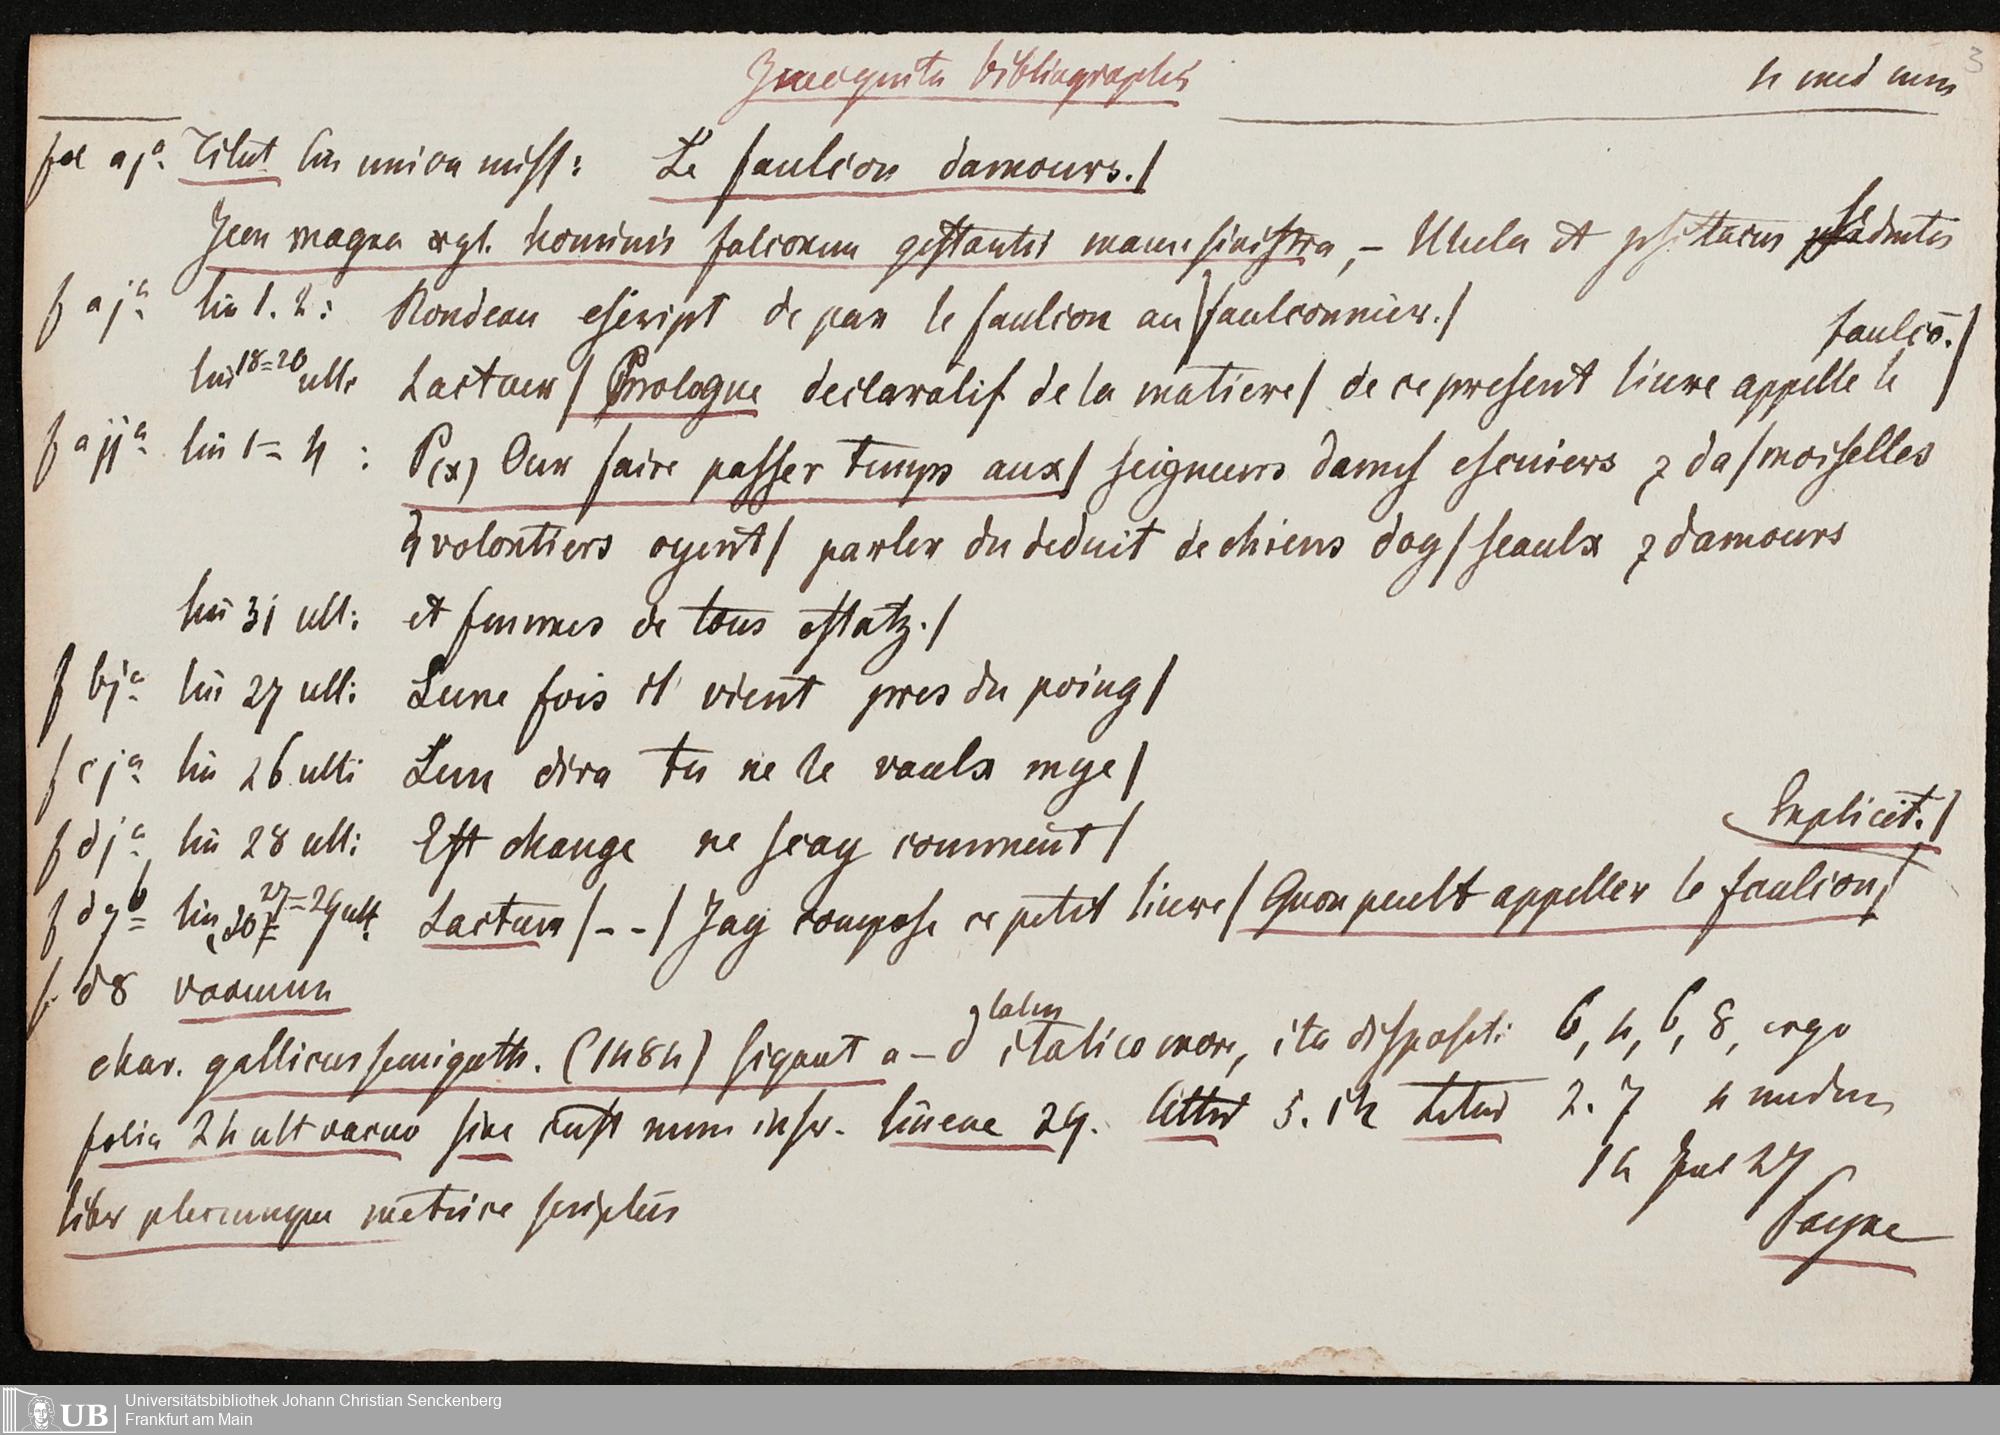 Incognita bibliographis
4 med min
3
fol aja. Titul. lin unica miss: Le faulcon damours./
Icon magna xyl. hominis falconem gestantis manu sinistra, – Ulula et psittacus sedentes
f aja. lin 1. 2: Rondeau escript de par le faulcon au/faulconnier./
faulcō./
lin 18=20 ult. Lacteur/ Prologue declaratif de la matiere/ de ce present liure appelle le
f ajja. lin 1=4: P(x) Our faire passer temps aux/ seigneurs dames escuiers ⁊ da/moiselles
q volontiers oyent/ parler du deduit de chiens doy/seaulx ⁊ damours
lin 31 ult: et femmes de tous estatz./
f bja. lin 27 ult: Lune fois il vient pres du poing/
f cja. lin 26 ult: Lun dira tu ne le vaulx mye/
Explicit./
f dja. lin 28 ult: Est change ne scay comment/
f d7b lin 27=29 ult. Lacteur/--/ Jay compose ce petit liure/ Quon peult appeller le faulcon/
f. d8 vacuum
char. gallicus semigoth. (1484) signat a–d italico more, ita disposit: 6, 4, 6, 8, ergo
folia 24 ult vacuo sine cust num inscr. lineae 29. 5. 2. 7 4 medm
14 Jul 27
liber plerumque metrice scriptus
Payne
Universitätsbibliothek Johann Christian Senckenberg
Frankfurt am Main
UB